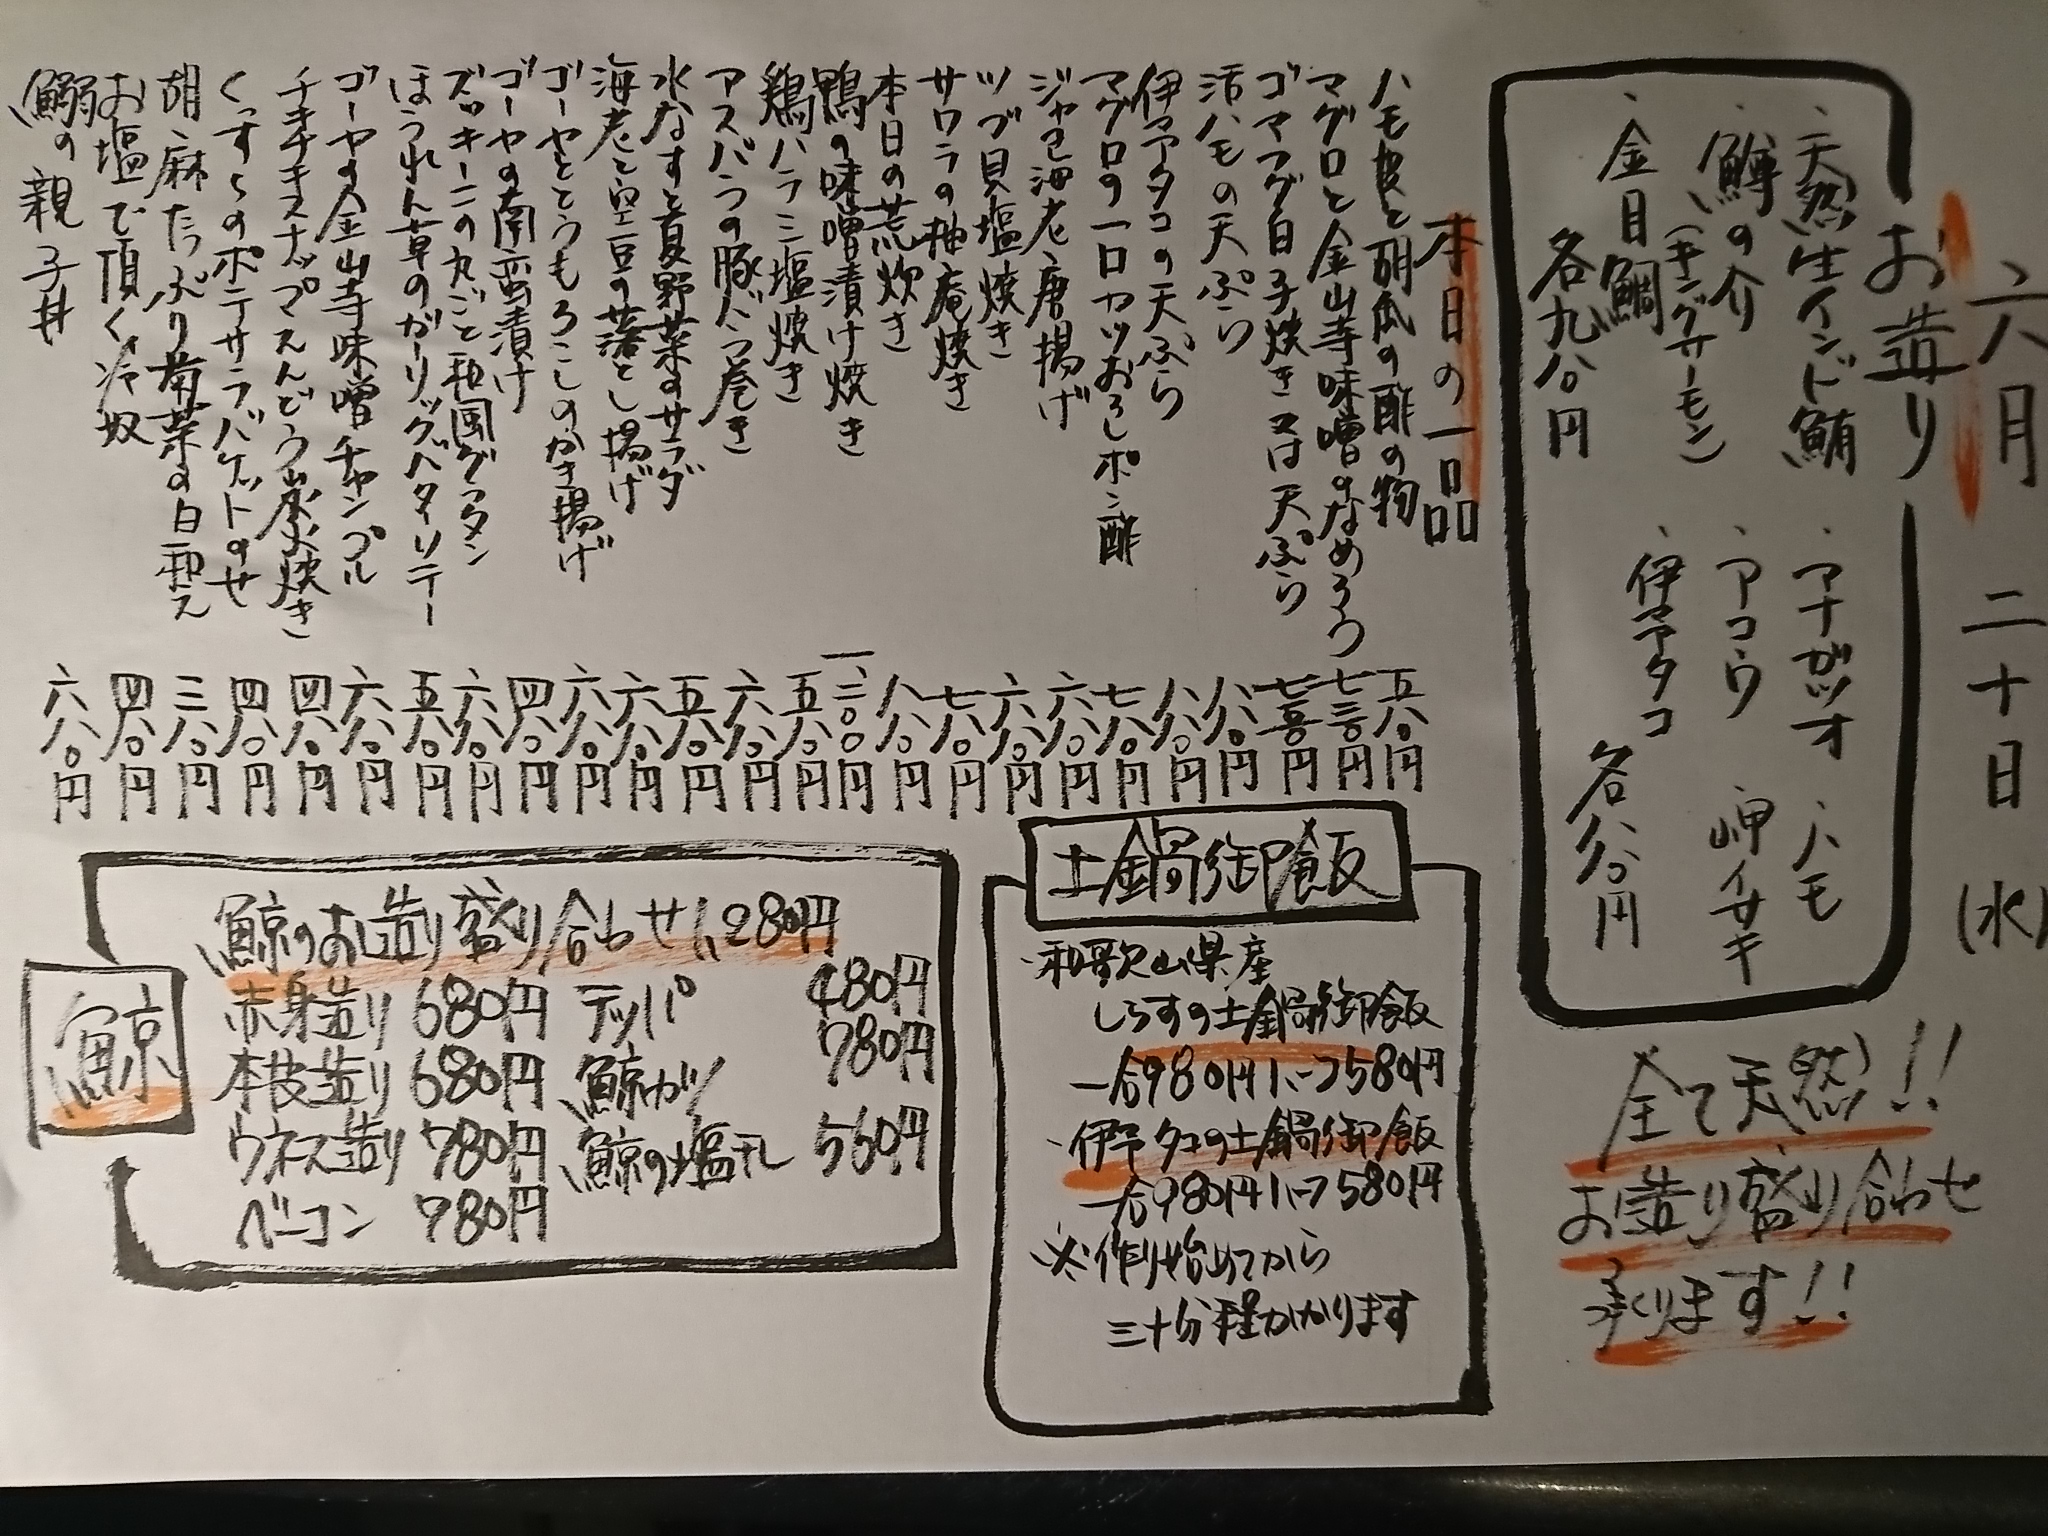 六月 二十日(水)
お造り
・天然生インド鮪
・鱒の介
(キングサーモン)
・金目鯛
各九八〇円
・アナガツオ
・アコウ
・伊予タコ
・ハモ
・岬イサキ
各八八〇円
全て天然!!
お造り盛り合わせ
承ります!!
本日の一品
ハモ皮と胡瓜の酢の物 五八〇円
マグロと金山寺味噌のなめろう 七三〇円
ゴマフグ白子焼き又は天ぷら 七五〇円
活ハモの天ぷら 八八〇円
伊予タコの天ぷら 八八〇円
マグロの一口カツおろしポン酢 七八〇円
ジャコ海老唐揚げ 六八〇円
ツブ貝塩焼き 六八〇円
サワラの柚庵焼き 七八〇円
本日の荒炊き 八八〇円
鴨の味噌漬け焼き 一、二〇〇円
鶏ハラミ塩焼き 五八〇円
アスパラの豚バラ巻き 六八〇円
水なすと夏野菜のサラダ 五八〇円
海老と空豆の落とし揚げ 六八〇円
ゴーヤととうもろこしのかき揚げ 六八〇円
ゴーヤの南蛮漬け 四八〇円
ズッキーニの丸ごと和風グラタン 六八〇円
ほうれん草のガーリックバターソテー 五八〇円
ゴーヤの金山寺味噌チャンプル 六八〇円
チキチキスナップえんどう 焼き 四八〇円
くっすらのポテサラバケットのせ 四八〇円
胡麻たっぷり菊菜の白和え 三八〇円
お塩で頂く冷奴 四八〇円
鰯の親子丼 六八〇円
土鍋御飯
・和歌山県産
しらすの土鍋御飯
一合980円 1.5〜1580円
・伊予タコの土鍋御飯
一合980円 1.5〜1580円
※作り始めてから
三十分程かかります
鯨
鯨のお造り盛り合わせ 1,280円
赤身造り 680円
本皮造り 680円
ウネス造り 780円
ベーコン 780円
テッパ 480円
鯨カツ 780円
鯨の塩干し 560円